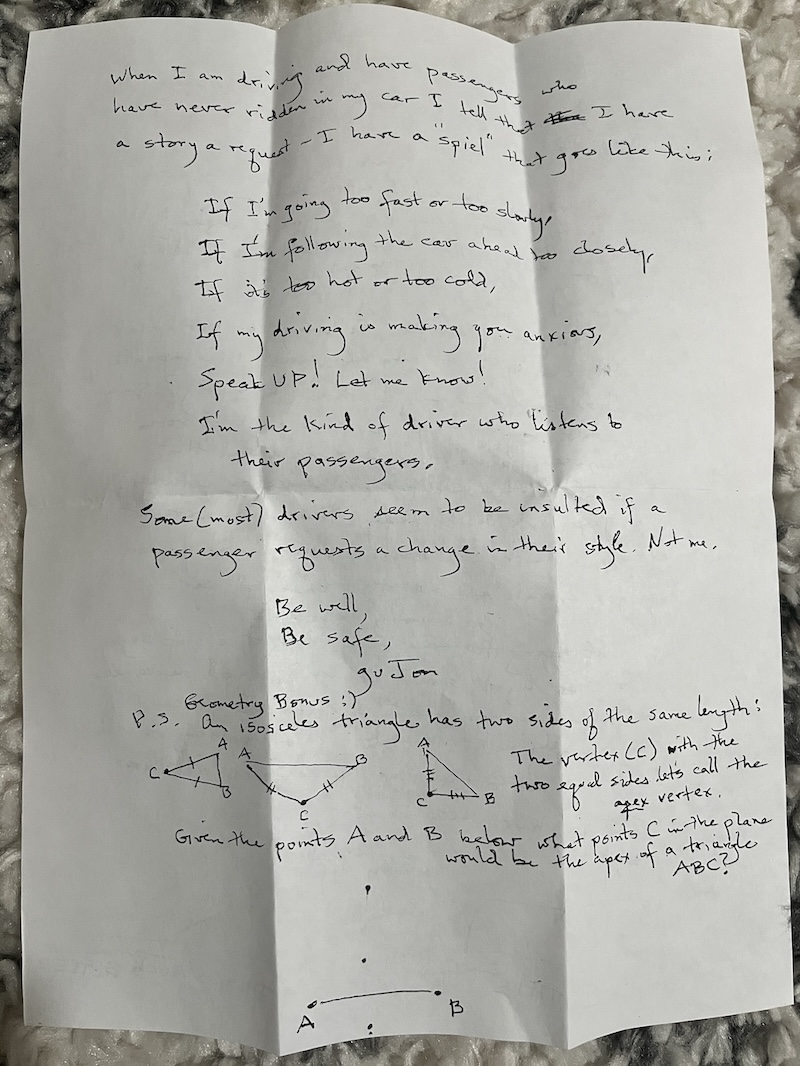 When I am driving and have passengers who
have never ridden in my car I tell that I have
a story a request - I have a "spiel" that goes like this:
If I'm going too fast or too slowly,
If I'm following the car ahead too closely,
If it's too hot or too cold,
If my driving is making you anxious,
Speak UP! Let me know!
I'm the kind of driver who listens to
their passengers.
Some (most) drivers seem to be insulted if a
passenger requests a change in their style. Not me.
Be well,
Be safe,
gu Jon
Geometry Bonus :)
P.S. An isosceles triangle has two sides of the same length:
A
C
B
A
B
C
A
C
B
The vertex (C) with the
two equal sides let's call the
apex vertex.
Given the points A and B below what points C in the plane
would be the apex of a triangle
ABC?
A
B